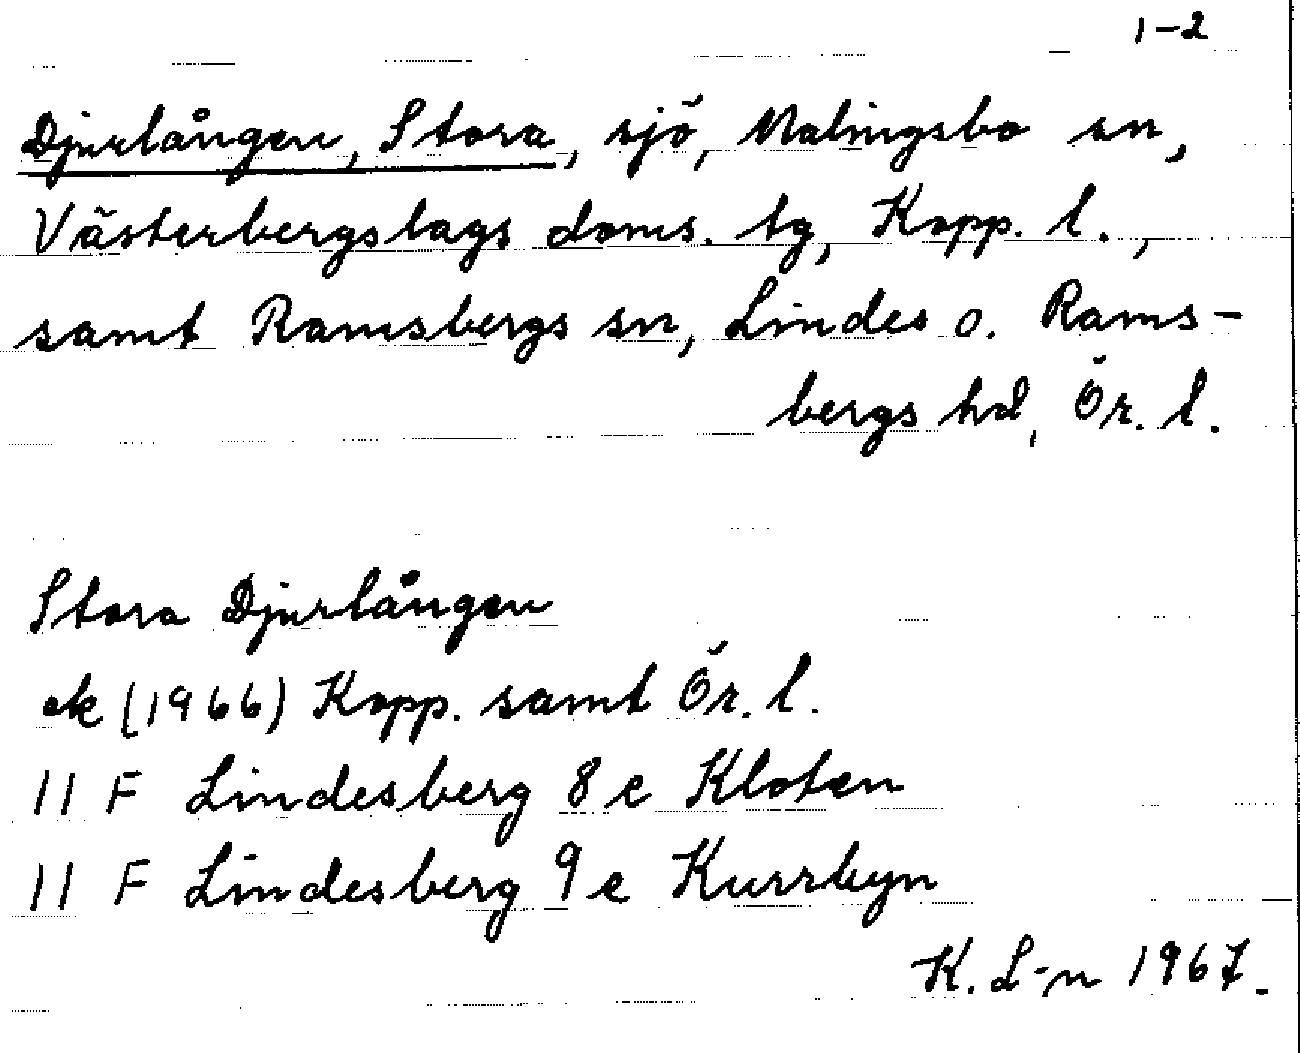 1-2
Djurlången, Stora, sjö, Malingsbo sn,
Västerbergslags doms. tg, Kopp. l.,
samt Ramsbergs sn, Lindes o. Rams-
bergs hd, Ör. l.
Stora Djurlången
ek (1966) Kopp. samt Ör. l.
11 F Lindesberg 8 e Kloten
11 F Lindesberg 9 e Kurrbyn
K. L-n 1967.